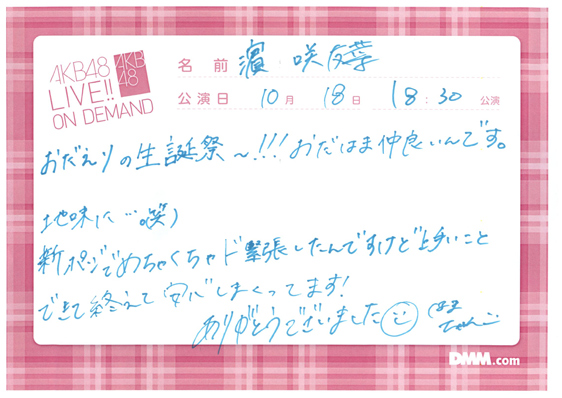 AKB48
LIVE!!
ON DEMAND
AKB
48
名 前 濵 咲友菜
公演日 10月 18日 18:30 公演
おだえりの生誕祭〜!!! おだはま仲良いんです。
地味に…(笑)
新ポジでめちゃくちゃド緊張したんですけど上手いこと
できて終えて安心しまくってます!
ありがとうございました
DMM.com